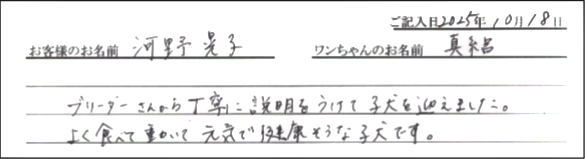 ご記入日2025年10月18日
お客様のお名前 河野 晃子 ワンちゃんのお名前 真絽
ブリーダーさんから丁寧に説明をうけて子犬を迎えました。
よく食べて動いて元気で健康そうな子犬です。